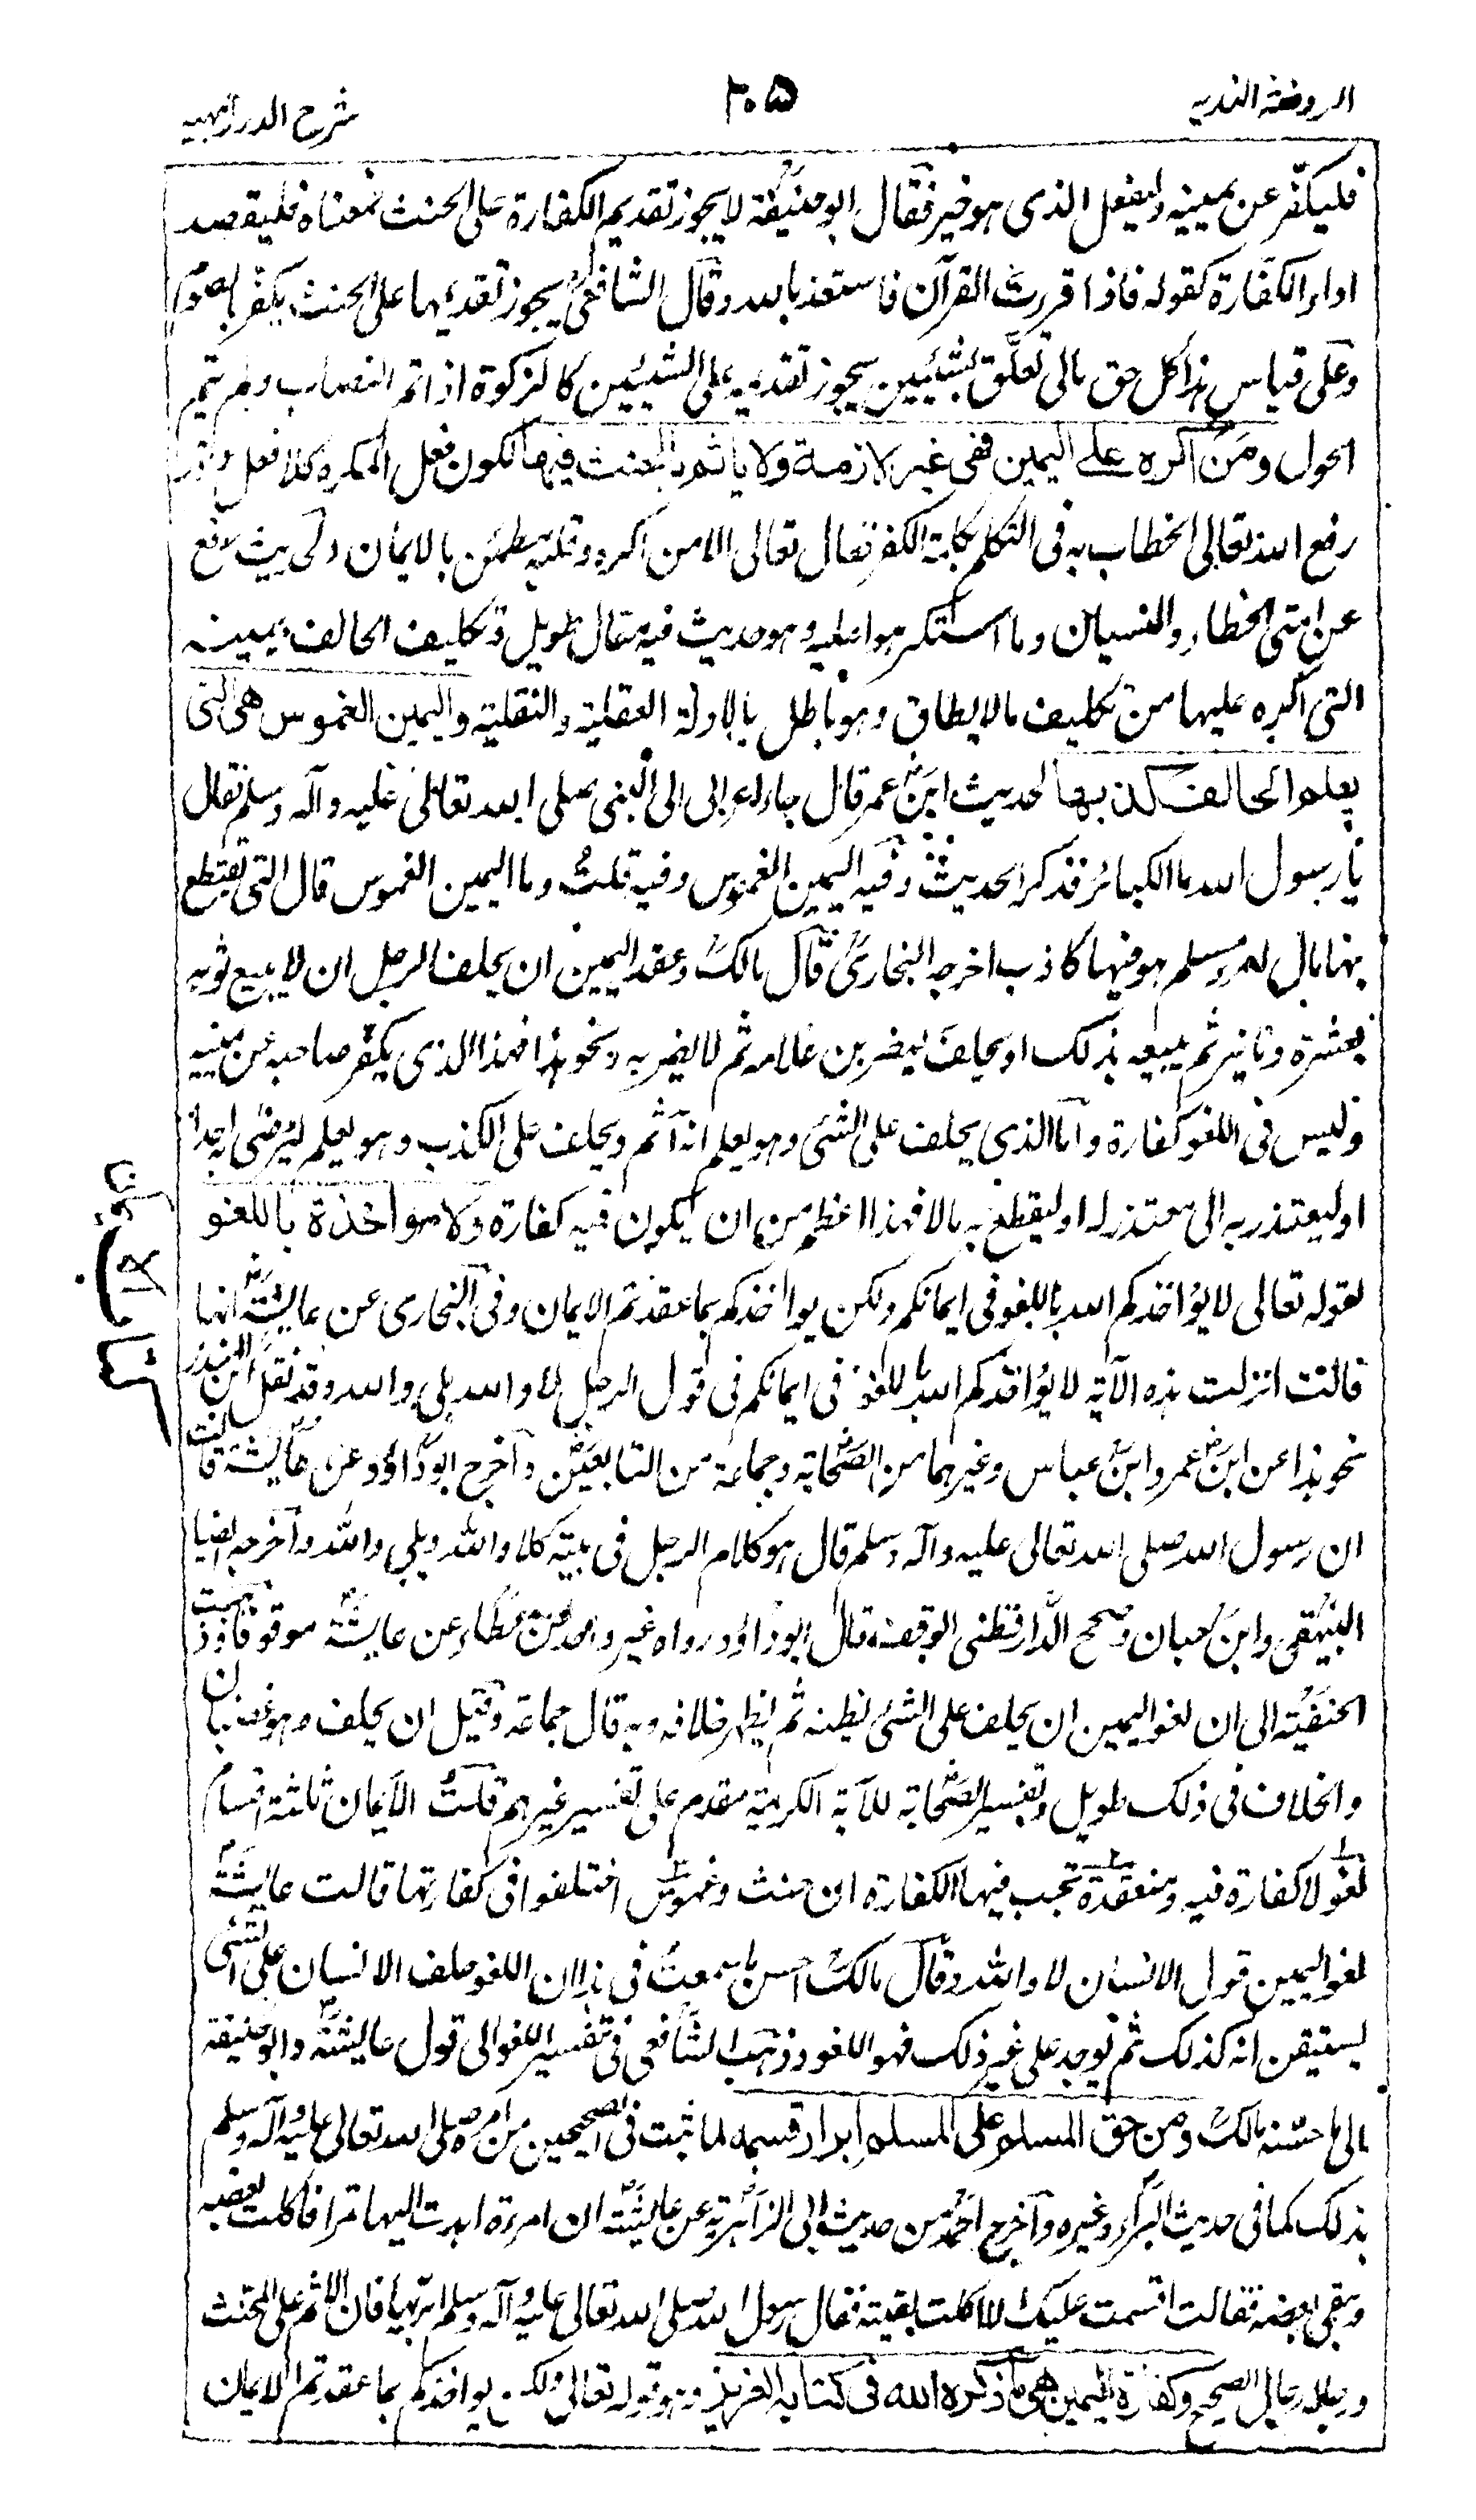 الروضة الندیه
٣٠٥
شرح الدرر البهیه
فلیکفّر عن یمینه ولیفعل الذی هو خیر فقال ابو حنیفة لا یجوز تقدیم الکفارة علی الحنث فمعناه فلیقصد
اداء الکفارة کقوله فاذا قرءت القرآن فاستعذ بالله وقال الشافعی یجوز تقدیمها علی الحنث یکفر بالصوم
وعلی قیاس هذا کل حق مالی تعلّق بشیئین یجوز تقدیمه علی الشیئین کالزکوة اذا تم النصاب ولم یتم
الحول ومن اکره علی الیمین فهی غیر لازمة ولا یأثم بالحنث فیها لکون فعل المکره کلا فعل وقد
رفع الله تعالی الخطاب به فی التکلم بکلمة الکفر فقال تعالی الا من اکره وقلبه مطمئن بالایمان ولحدیث رفع
عن امتی الخطاء والنسیان وما استکرهوا علیه وهو حدیث فیه مقال طویل وتکلیف الحالف بیمینه
التی اکره علیها من تکلیف مالا یطاق وهو باطل بالادلة العقلیة والنقلیة والیمین الغموس هی التی
یعلم الحالف کذبها لحدیث ابن عمر قال جاء اعرابی الی النبی صلی الله تعالی علیه وآله وسلم فقال
یا رسول الله ما الکبائر فذکر الحدیث وفیه الیمین الغموس وفیه قلت وما الیمین الغموس قال التی یقتطع
بها مال امرء مسلم هو فیها کاذب اخرجه البخاری قال مالک وعقد الیمین ان یحلف الرجل ان لا یبیع ثوبه
بعشرة دنانیر ثم یبیعه بذلک او یحلف لیضربن غلامه ثم لا یضربه ونحو هذا فهذا الذی یکفر صاحبه عن یمینه
ولیس فی اللغو کفارة واما الذی یحلف علی الشئ وهو یعلم انه آثم ویحلف علی الکذب وهو یعلم لیرضی به احدا
او لیعتذر به الی معتذر له او لیقطع به مالا فهذا اعظم من ان یکون فیه کفارة ولا مواخذة باللغو
لقوله تعالی لا یؤاخذکم الله باللغو فی ایمانکم ولکن یواخذکم بما عقدتم الایمان وفی البخاری عن عایشة انها
قالت انزلت هذه الآیة لا یؤاخذکم الله باللغو فی ایمانکم فی قول الرجل لا والله بلی والله وقد نقل ابن المنذر
نحو هذا عن ابن عمر وابن عباس وغیرهما من الصحابة وجماعة من التابعین واخرج ابو داؤد عن عایشة قالت
ان رسول الله صلی الله تعالی علیه وآله وسلم قال هو کلام الرجل فی بیته کلا والله وبلی والله واخرجه ایضا
البیهقی وابن حبان وصحح الدارقطنی الوقف قال ابو داؤد رواه غیر واحد عن عطاء عن عایشة موقوفا وذهبت
الحنفیة الی ان لغو الیمین ان یحلف علی الشئ یظنه ثم یظهر خلافه وبه قال جماعة وقیل ان یحلف وهو غضبان
والخلاف فی ذلک طویل وتفسیر الصحابة للآیة الکریمة مقدم علی تفسیر غیرهم قلت الایمان ثلثة اقسام
لغو لا کفارة فیه ومنعقدة تجب فیها الکفارة ان حنث وغموس اختلفوا فی کفارتها قالت عایشة
لغو الیمین قول الانسان لا والله وقال مالک احسن ما سمعت فی هذا ان اللغو حلف الانسان علی الشئ
یستیقن انه کذلک ثم یوجد علی غیر ذلک فهو اللغو وذهب الشافعی فی تفسیر اللغو الی قول عایشة وابو حنیفة
الی ما حسّنه مالک ومن حق المسلم علی المسلم ابرار قسمه لما ثبت فی الصحیحین من امره صلی الله تعالی علیه وآله وسلم
بذلک کما فی حدیث البراء وغیره واخرج احمد من حدیث ابی الزاهریة عن عایشة ان امرءة اهدت الیها تمرا فاکلت بعضه
وبقی بعضه فقالت اقسمت علیک الا اکلت بقیته فقال رسول الله صلی الله تعالی علیه وآله وسلم ابرّیها فان الاثم علی المحنث
ورجاله رجال الصحیح وکفارة الیمین هی ما ذکره الله فی کتابه العزیز وهو قوله تعالی ولکن یواخذکم بما عقدتم الایمان